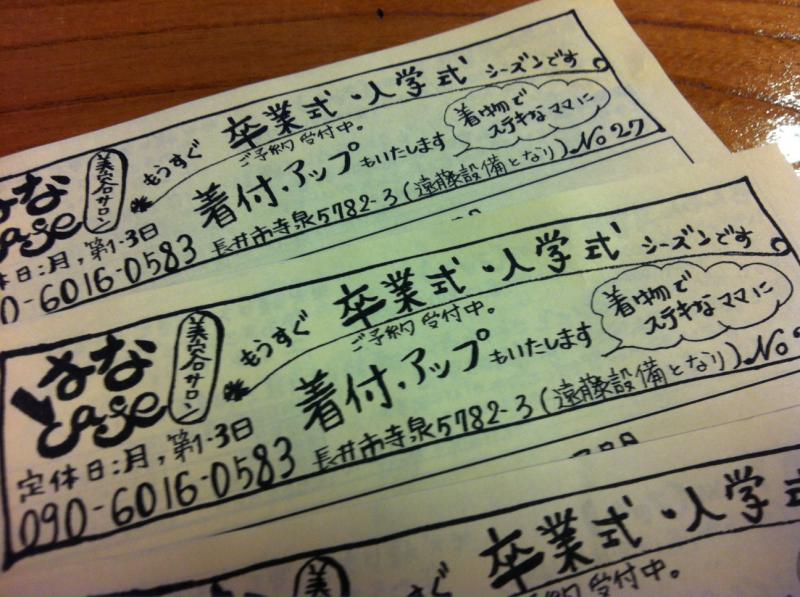 美容サロン
もうすぐ 卒業式・入学式 シーズンです。
ご予約受付中。
着付、アップもいたします
着物で
ステキなママに
長井市寺泉5782-3(遠藤設備となり) No27
はな
case
休日:月,第1-3日
0-6016-0583
はな
case
美容サロン
もうすぐ 卒業式・入学式 シーズンです。
ご予約受付中。
着付、アップもいたします
着物で
ステキなママに
定休日:月,第1-3日
090-6016-0583
長井市寺泉5782-3(遠藤設備となり) No
卒業式・入学式
ご予約受付中。